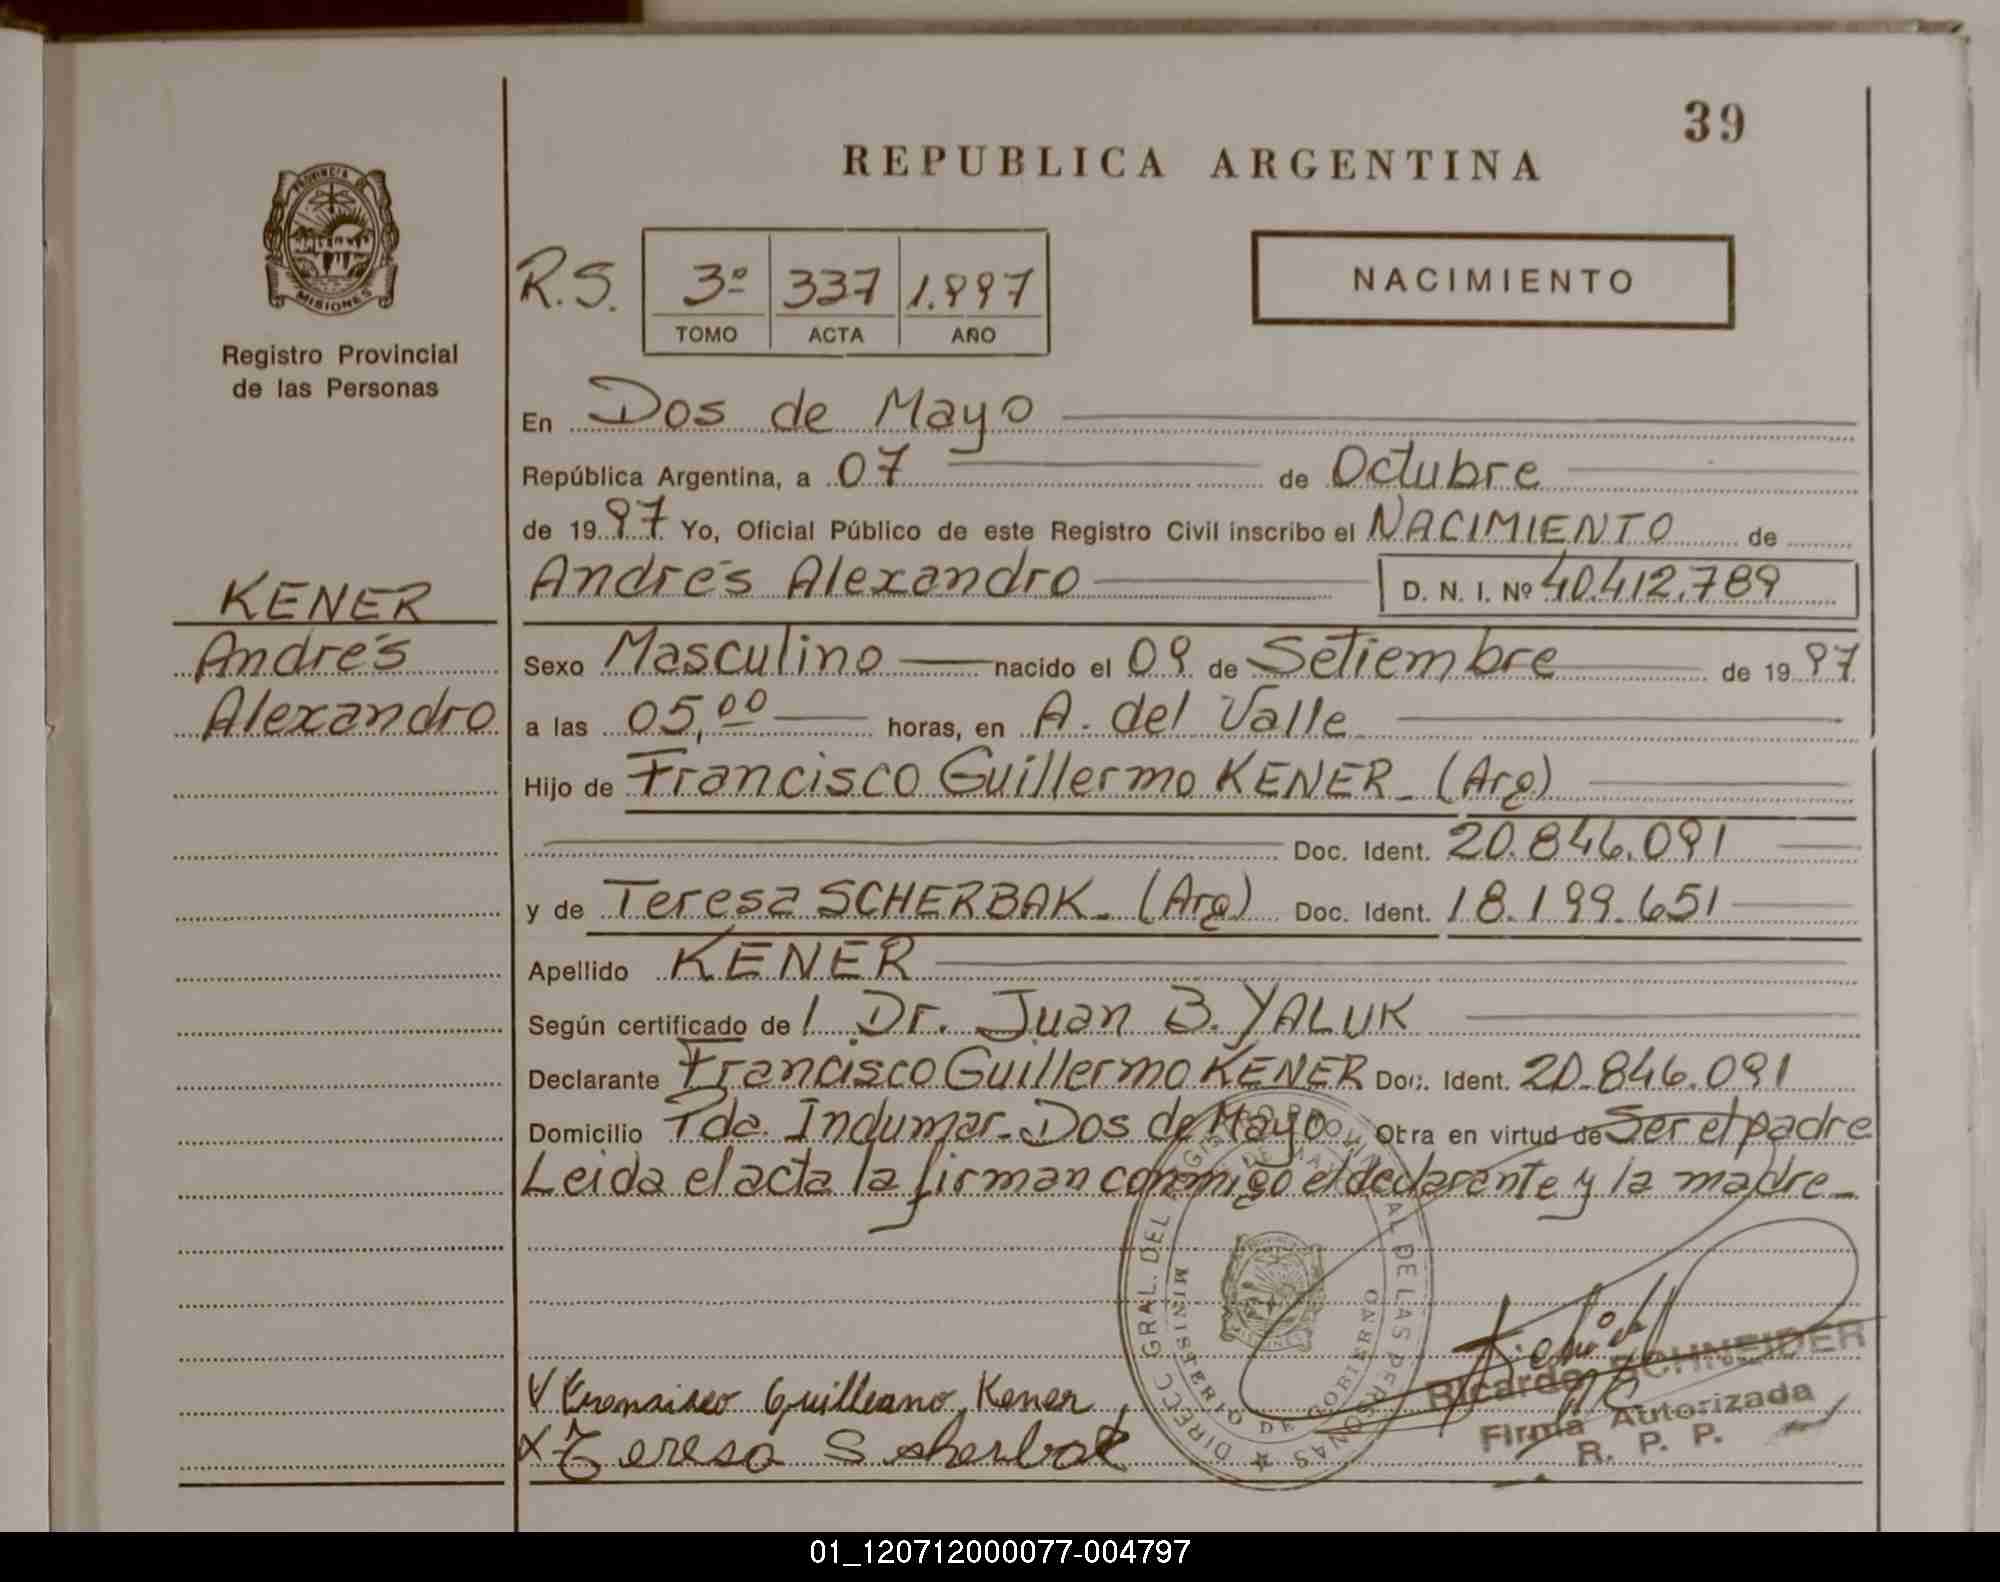 39
REPUBLICA ARGENTINA
PROVINCIA DE
MISIONES
Registro Provincial
de las Personas
R.S. 3º 337 1.997
TOMO ACTA AÑO
NACIMIENTO
En Dos de Mayo
República Argentina, a 07 de Octubre
de 1997 Yo, Oficial Público de este Registro Civil inscribo el NACIMIENTO de
Andrés Alexandro D. N. I. Nº 40.412.789
KENER
Andrés
Alexandro
Sexo Masculino nacido el 09 de Setiembre de 1997
a las 05,00 horas, en A. del Valle
Hijo de Francisco Guillermo KENER_ (Arg)
Doc. Ident. 20.846.091
y de Teresa SCHERBAK_ (Arg) Doc. Ident. 18.199.651
Apellido KENER
Según certificado de l Dr. Juan B. YALUK
Declarante Francisco Guillermo KENER Doc. Ident. 20.846.091
Domicilio Pda. Indumar_ Dos de Mayo Obra en virtud de Ser el padre
Leida el acta la firman conmigo el declarante y la madre_
DIRECC GRAL. DEL REGISTRO PROVINCIAL DE LAS PERSONAS
MINISTERIO DE GOBIERNO
Kener
X Teresa Scherbak
Ricardo SCHNEIDER
Firma Autorizada
R. P. P.
01_120712000077-004797